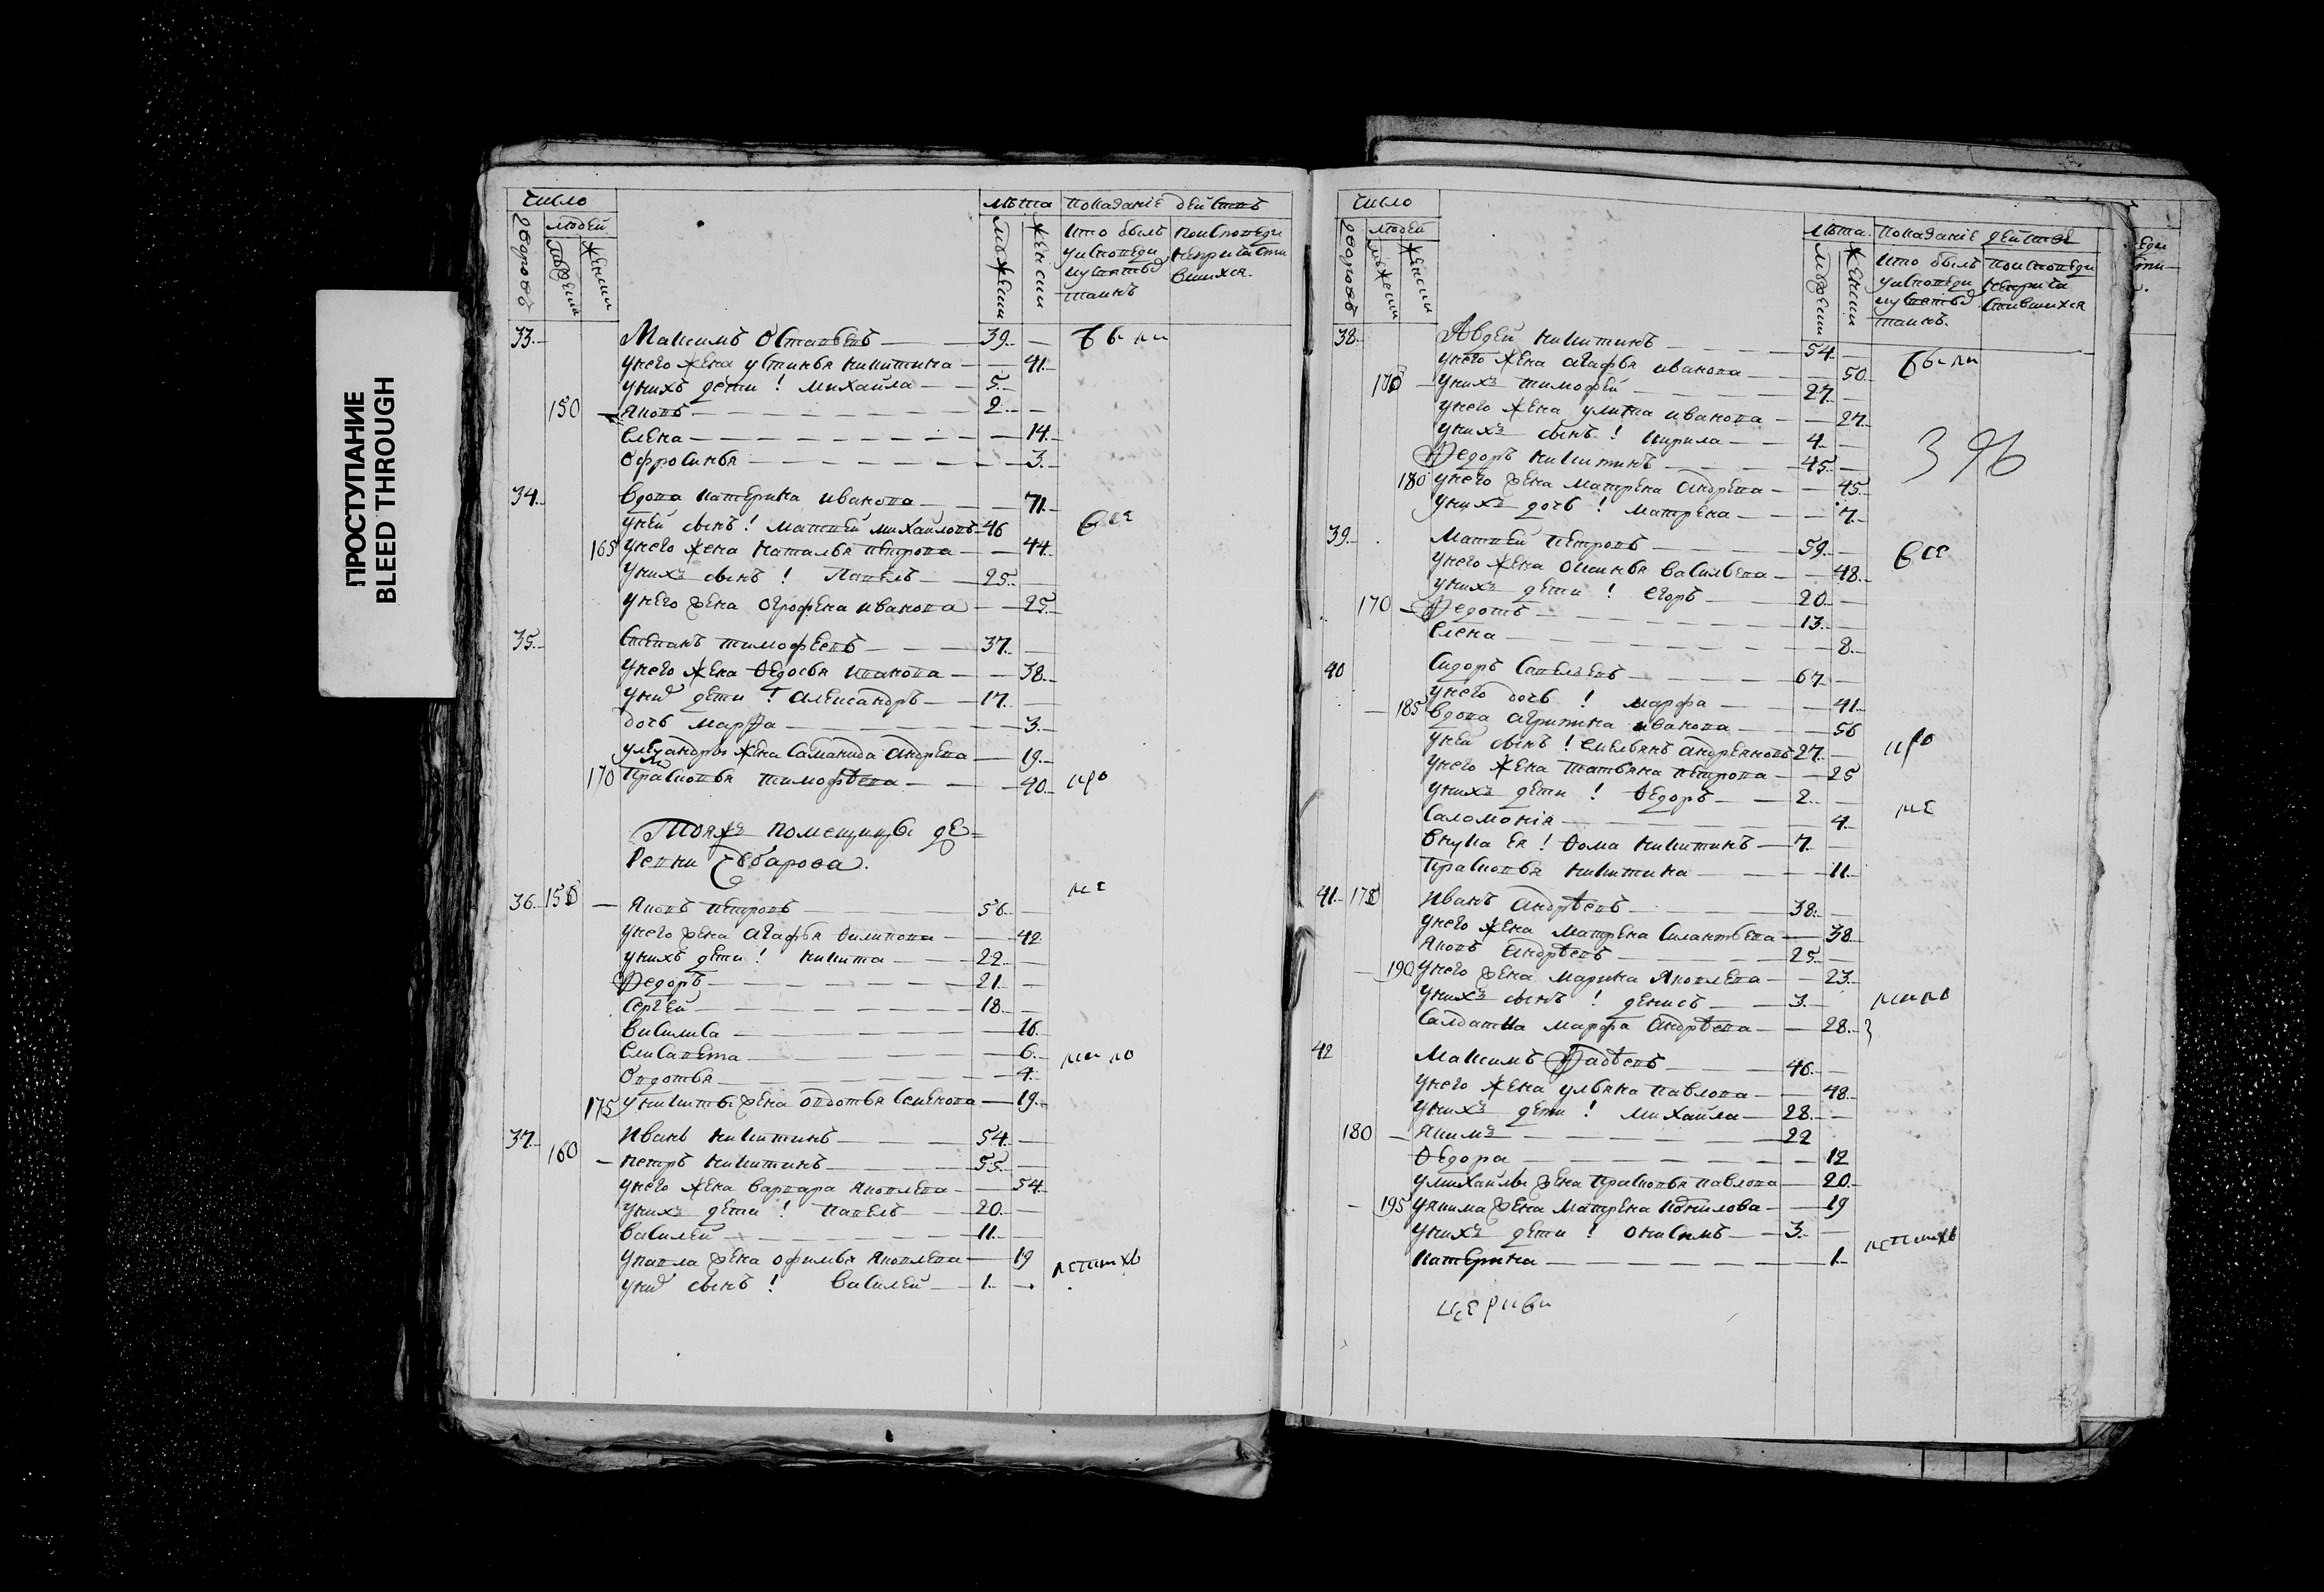 ПРОСТУПАНИЕ
BLEED THROUGH
число
лѣта показанiе действъ
дворовъ людей
мужески женски
мужески женски
кто былъ у исповеди и у святыхъ таинъ
по исповеди не причастившихся.
33. Максимъ Остаповъ 39. были
у него жена устинья никитина 41.
у нихъ дети ! михайла 5.
150 яковъ 2.
елена 14.
офросинья 3.
34. вдова катерина иванова 71.
у ней сынъ ! матвей михайловъ 46 все
165 у него жена наталья петрова 44.
у нихъ сынъ ! павелъ 25.
у него жена огрофена иванова 25.
35. степанъ тимофеевъ 37.
у него жена ѳедосья иванова 38.
у нихъ дети ! александръ 17.
дочь марфа 3.
у лександры жена саманида андрева 19.
170 прасковья тимофѣева 40. кро
Тояжъ помещицы де=
ревни
ме
36. 155 яковъ петровъ 56.
у него жена агафья филипова 42
у нихъ дети ! никита 22.
федоръ 21.
сергей 18.
василиса 16.
елисавета 6. мало
овдотья 4.
175 у никиты жена овдотья семенова 19.
37. иванъ никитинъ 54.
160 петръ никитинъ 55.
у него жена варвара яковлева 54.
у нихъ дети ! павелъ 20.
василей 11.
у павла жена офимья яковлева 19 летнихъ
у нихъ сынъ ! василей 1.
число
лѣта. показанiе действъ
дворовъ людей
мужески женски
мужески женски
кто былъ у исповеди и у святыхъ таинъ.
по исповеди не причастившихся
38. Авдей никитинъ 54. были
у него жена агафья иванова 50.
у нихъ тимофей 27.
у него жена улита иванова 27.
у нихъ сынъ ! кирила 4.
396
федоръ никитинъ 45.
180 у него жена матрена андрева 45.
у нихъ дочь ! матрена 7.
39. матвей петровъ 59. все
у него жена оксинья васильева 48.
у нихъ дети ! егоръ 20.
170 федотъ 13.
елена 8.
40 сидоръ савельевъ 67.
у него дочь ! марфа 41.
185 вдова агрипина иванова 56
у ней сынъ ! емельянъ андреяновъ 27. кро
у него жена татьяна петрова 25
у нихъ дети ! ѳедоръ 2.
саломонiя 4. ме
внука ея ! ѳома никитинъ 7.
прасковья никитина 11.
41. 175 иванъ андрѣевъ 38.
у него жена матрена силантьева 38
яковъ андрѣевъ 25.
190 у него жена марина яковлева 23.
у нихъ сынъ ! денисъ 3. мало
салдатка марфа андрѣева 28.
42 максимъ фадѣевъ 46.
у него жена ульяна павлова 48.
у нихъ дети ! михайла 28.
180 якимъ 22
ѳедора 12
у михайлы жена прасковья павлова 20.
195 у якима жена матрена 19
у нихъ дети ! онисимъ 3.
катерина 1. летнихъ
церкви